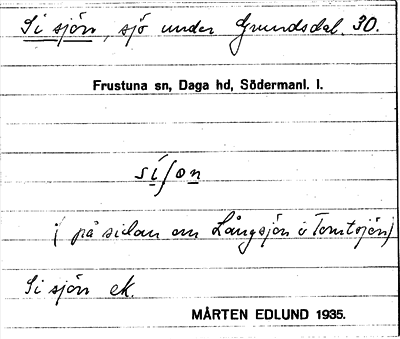 Si sjön, sjö under Grundsdal. 30.
Frustuna sn, Daga hd, Södermanl. l.
síʃon
(på sidan om Långsjön o Tomtsjön)
Si sjön ek.
MÅRTEN EDLUND 1935.